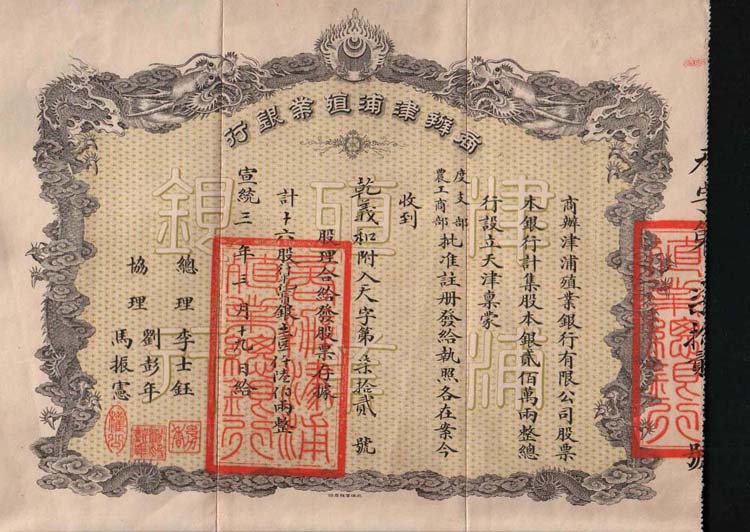 商辦津浦殖業銀行
商辦津浦殖業銀行有限公司股票
本銀行計集股本銀貳佰萬兩整總
行設立天津稟蒙
度支部
農工商部批准註冊發給執照各在案今
收到
乾義和附入天字第柒拾貳號
股理合給發股票存據
計十六股行實銀壹仟陸佰兩整
宣統三年三月十九日給
總理 李士鈺
協理 劉彭年
馬振憲
津浦
殖業
銀行